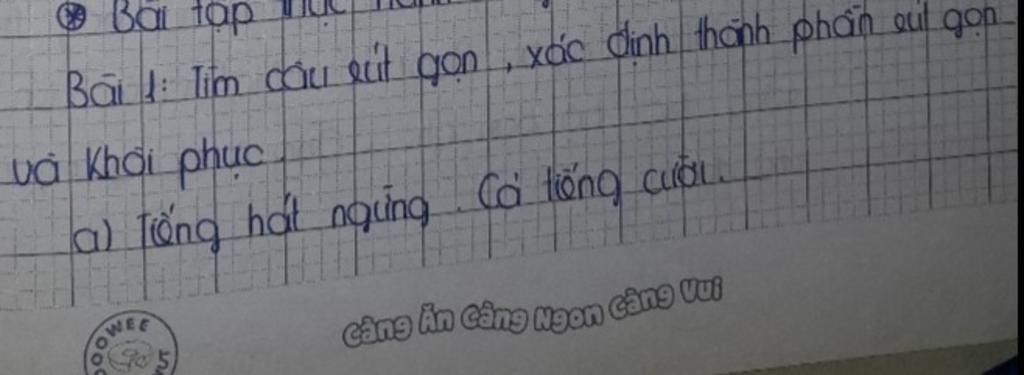 ⊛ Bài tập thực hành
Bài 1: Tìm câu rút gọn, xác định thành phần rút gọn
và khôi phục
a) Tiếng hát ngừng. Cả tiếng cười.
Càng Ăn Càng Ngon Càng Vui
OOWEE